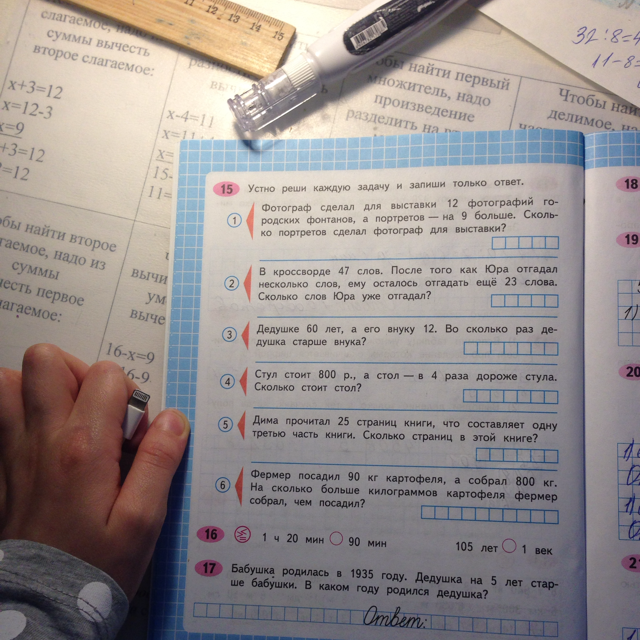 слагаемое, надо из
суммы вычесть
второе слагаемое:
x+3=12
x=12-3
x=9
+3=12
=12
x-4=11
15-
11=
бы найти первый
множитель, надо
произведение
разделить на
Чтобы най
делимое, на
32:8=4
11-8=
бы найти второе
гаемое, надо из
суммы
честь первое
лагаемое:
вычи
ум
выче
16-x=9
16-9
11 12 13 14 15
15 Устно реши каждую задачу и запиши только ответ.
1 Фотограф сделал для выставки 12 фотографий го-
родских фонтанов, а портретов — на 9 больше. Сколь-
ко портретов сделал фотограф для выставки?
2 В кроссворде 47 слов. После того как Юра отгадал
несколько слов, ему осталось отгадать ещё 23 слова.
Сколько слов Юра уже отгадал?
3 Дедушке 60 лет, а его внуку 12. Во сколько раз де-
душка старше внука?
4 Стул стоит 800 р., а стол — в 4 раза дороже стула.
Сколько стоит стол?
5 Дима прочитал 25 страниц книги, что составляет одну
третью часть книги. Сколько страниц в этой книге?
6 Фермер посадил 90 кг картофеля, а собрал 800 кг.
На сколько больше килограммов картофеля фермер
собрал, чем посадил?
16 1 ч 20 мин 90 мин 105 лет 1 век
17 Бабушка родилась в 1935 году. Дедушка на 5 лет стар-
ше бабушки. В каком году родился дедушка?
Ответ:
18
19
20
21